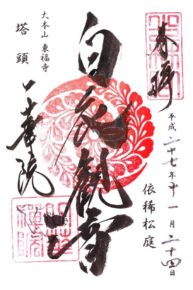 奉拝
平成二十七年十一月二十四日
依稀松庭
白衣観音
大本山 東福寺
塔頭
一華院